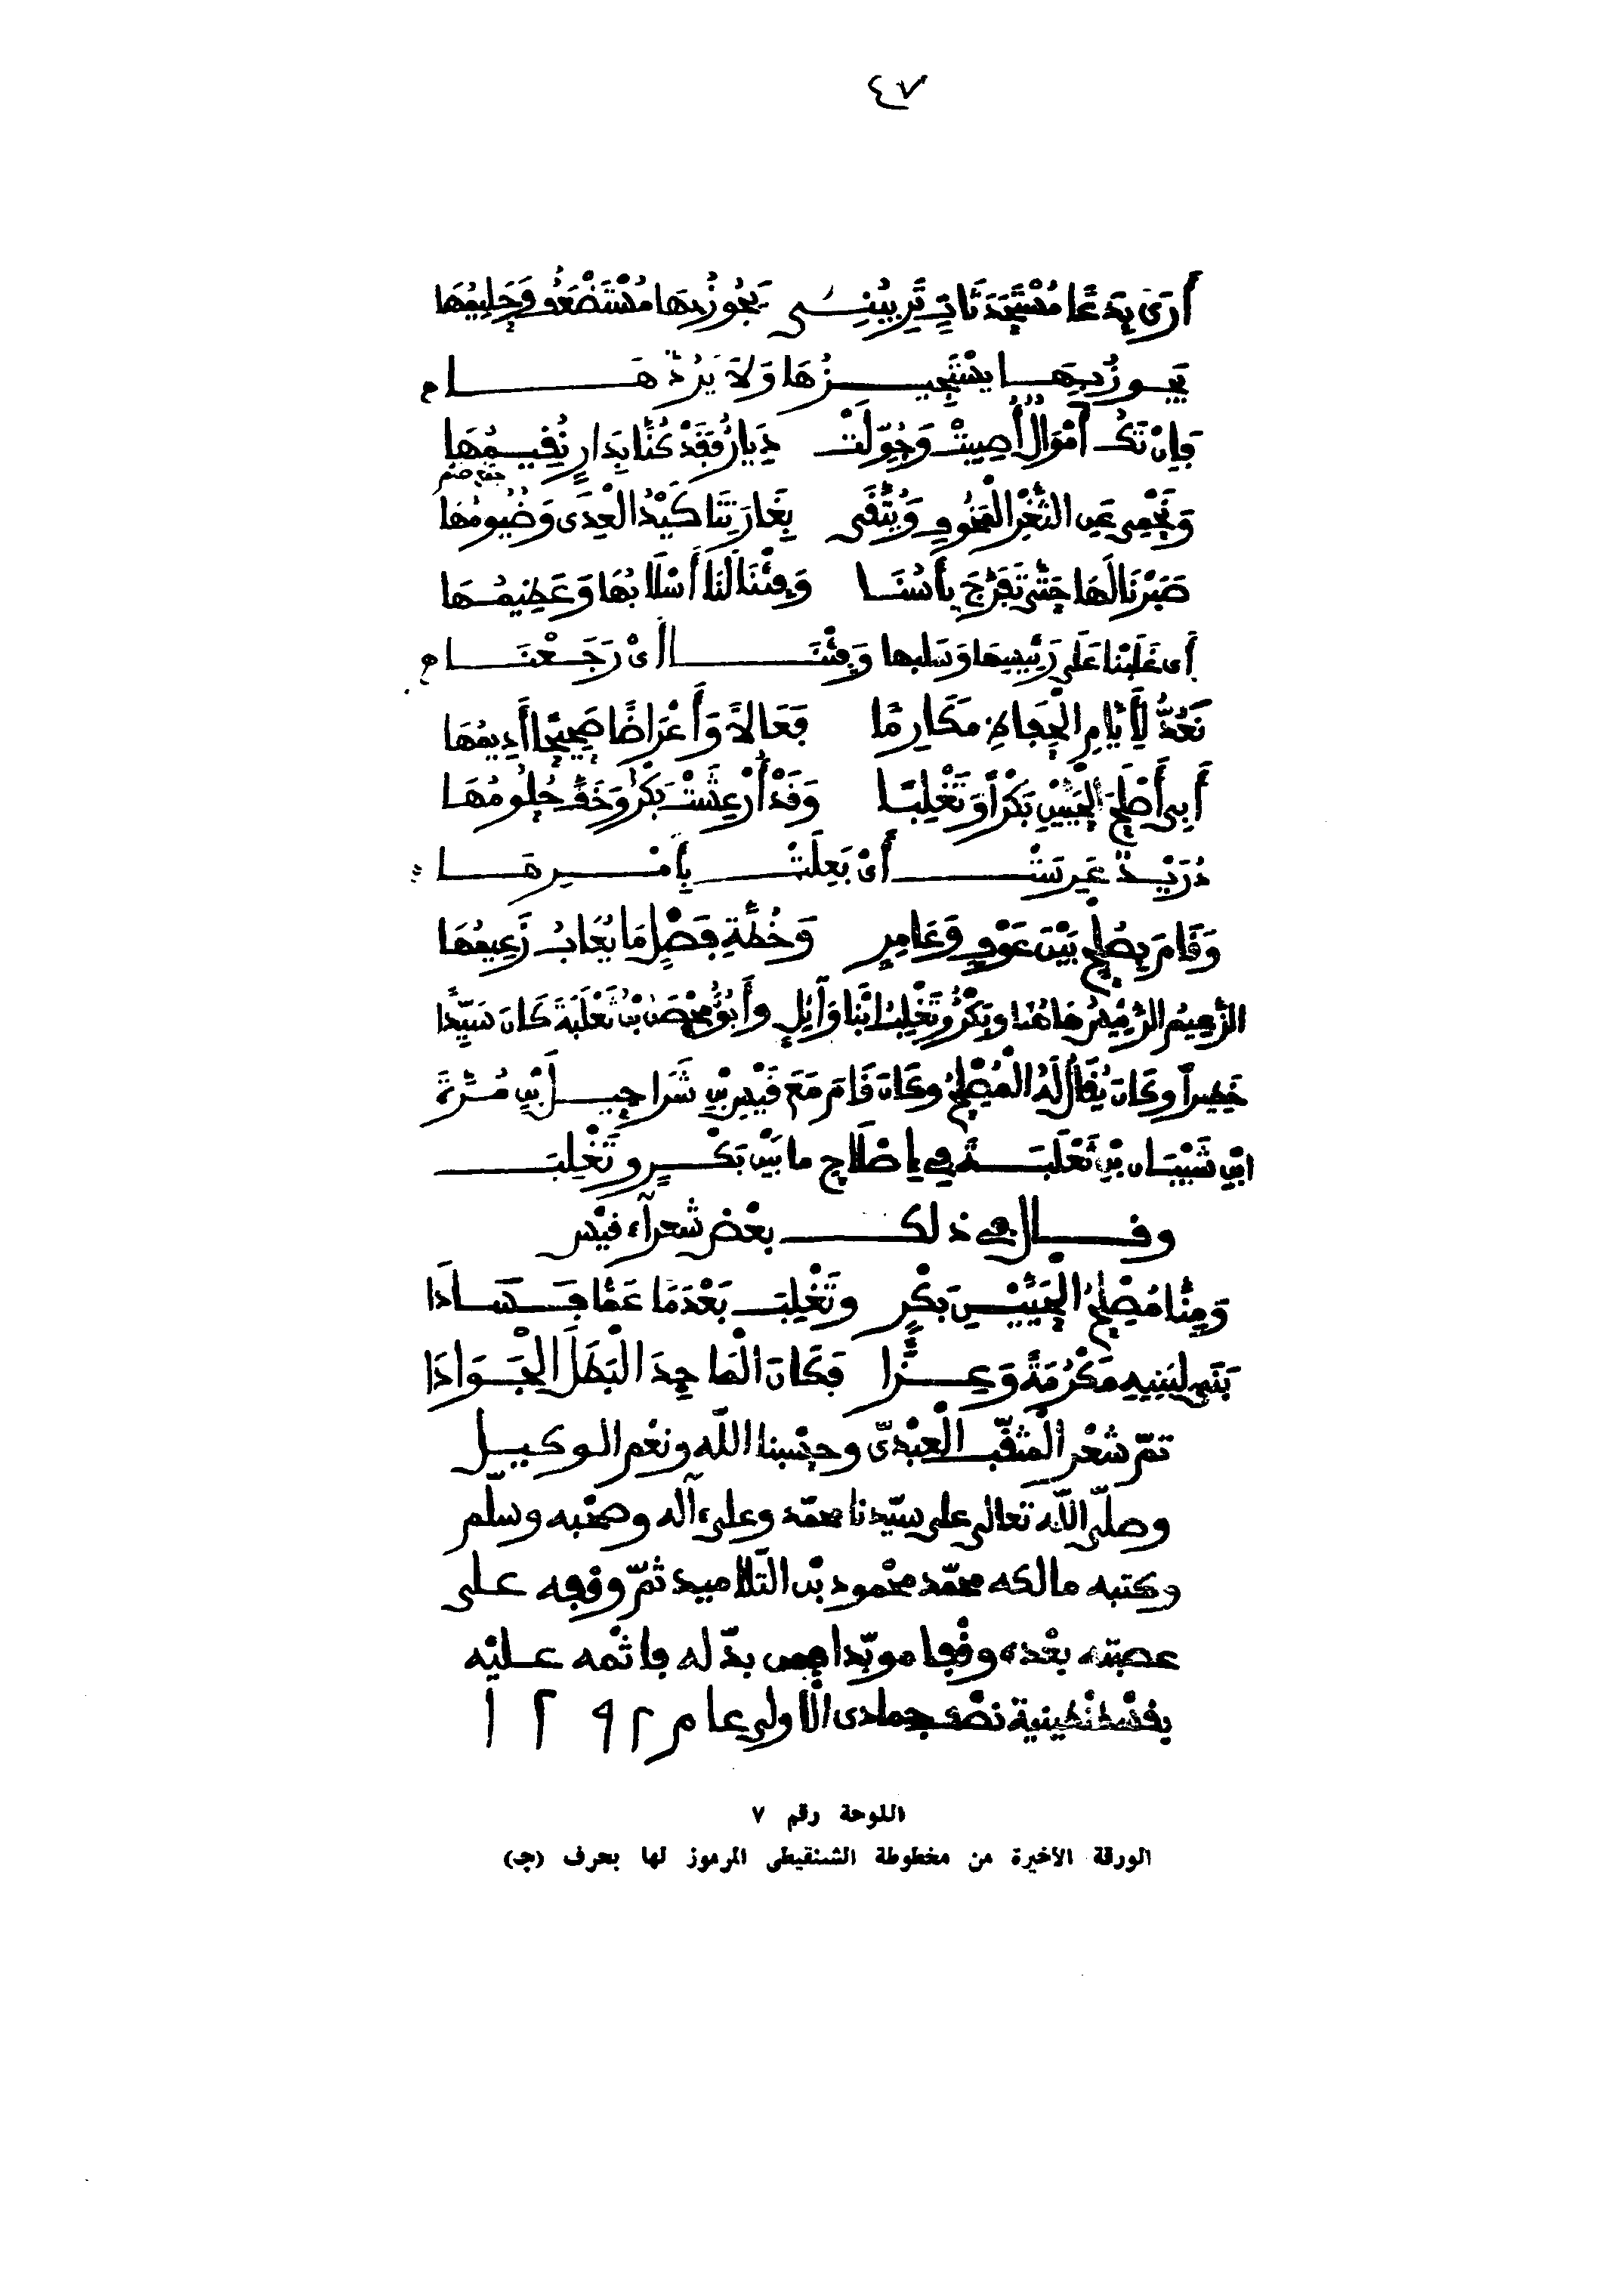 ٤٧
أَرَى بِدَعًا مُسْتَحْدَثَاتٍ تُرِيبُنِي يَجُوزُ بِهَا مُسْتَضْعَفٌ وَحَلِيمُهَا
يَجوزُ بِهَا يَسْتَجِيزُهَا وَلَا يَرُدُّهَا م
فَإِنْ تَكُ أَمْوَالٌ أُصِيبَتْ وَحُوِّلَتْ دِيَارٌ فَقَدْ كُنَّا بِدَارٍ نُقِيمُهَا
جمع ضيم
وَنَحْمِي عَنِ الثَّغْرِ الْمَخُوفِ وَيُتَّقَى بِغَارَتِنَا كَيْدُ الْعِدَى وَضُيُومُهَا
صَبَرْنَا لَهَا حَتَّى تَفَرَّجَ بَأْسُنَا وَفِئْنَا لَنَا أَسْلَابُهَا وَعَظِيمُهَا
أَى غَلَبْنَا عَلَى رَئِيسِهَا وَسَلبها وَفِئْنَا أَىْ رَجَعْنَا م
نَعُدُّ لِأَيَّامِ الْحِفَاظِ مَكَارِمًا فَعَالًا وَأَعْرَاضًا صَحِيحًا أَدِيمُهَا
أَبِي أَصْلَحَ الْحَيَّيْنِ بَكْرًا وَتَغْلِبًا وَقَدْ أُرْعِشَتْ بَكْرٌ وَخَفَّ حُلُومُهَا
دُرَيْدٌ عَرِسَتْ أَىْ بَعِلَتْ بِأَمْرِهَا
وَقَامَ بِصُلْحٍ بَيْنَ عَوْفٍ وَعَامِرٍ وَخُطَّةِ فَصْلٍ مَا يُعَابُ زَعِيمُهَا
الزَّعِيمُ الرَّئِيسُ هَاهُنَا وبَكْرٌ وَتَغْلِبُ ابْنَا وَآئِلٍ وأَبُوهُ مِحْصَنُ بْنُ ثَعْلَبَةَ كَانَ سَيِّدًا
خَطِيرًا وَكَانَ يُقَالُ لَهُ الْمُصْلِحُ وكَانَ قَامَ مَعَ قَيْسِ بْنِ شَرَاحِيلَ بْنِ مُرَّةَ
ابْنِ شَيْبَانَ بْنِ ثَعْلَبَةَ فِي إِصْلَاحِ ما بَيْنَ بَكْرٍ وتَغْلِبَ
وقال في ذلك بعْض شعرآء قيْس
وَمِنَّا مُصْلِحُ الْحَيَّيْنِ بَكْرٍ وتَغْلِبَ بَعْدَمَا عَمَّا فَسَادَا
بَنَى لِبَنِيهِ مَكْرُمَةً وَعِزًّا فَكَانَ الْمَاجِدَ الْبَطَلَ الْجَوَادَا
تمّ شعْر الْمثقّب الْعبْدىّ وحسْبنا اللّه ونعْم الوكيل
وصلّى اللّه تعالى على سيّدنا محمّد وعلىٰ آله وصحْبه وسلّم
وكتبه مالكه محمّد محْمود بْن التّلاميد ثمّ وقفه على
عصبته بعْده وقْفا موبّدا فمن بدّله فاثْمه عليْه
بقسْطنْطينية نصْف جمادى الْاولى عام ١٢٩٢
اللوحة رقم ٧
الورقة الأخيرة من مخطوطة الشنقيطى المرموز لها بحرف (جـ)